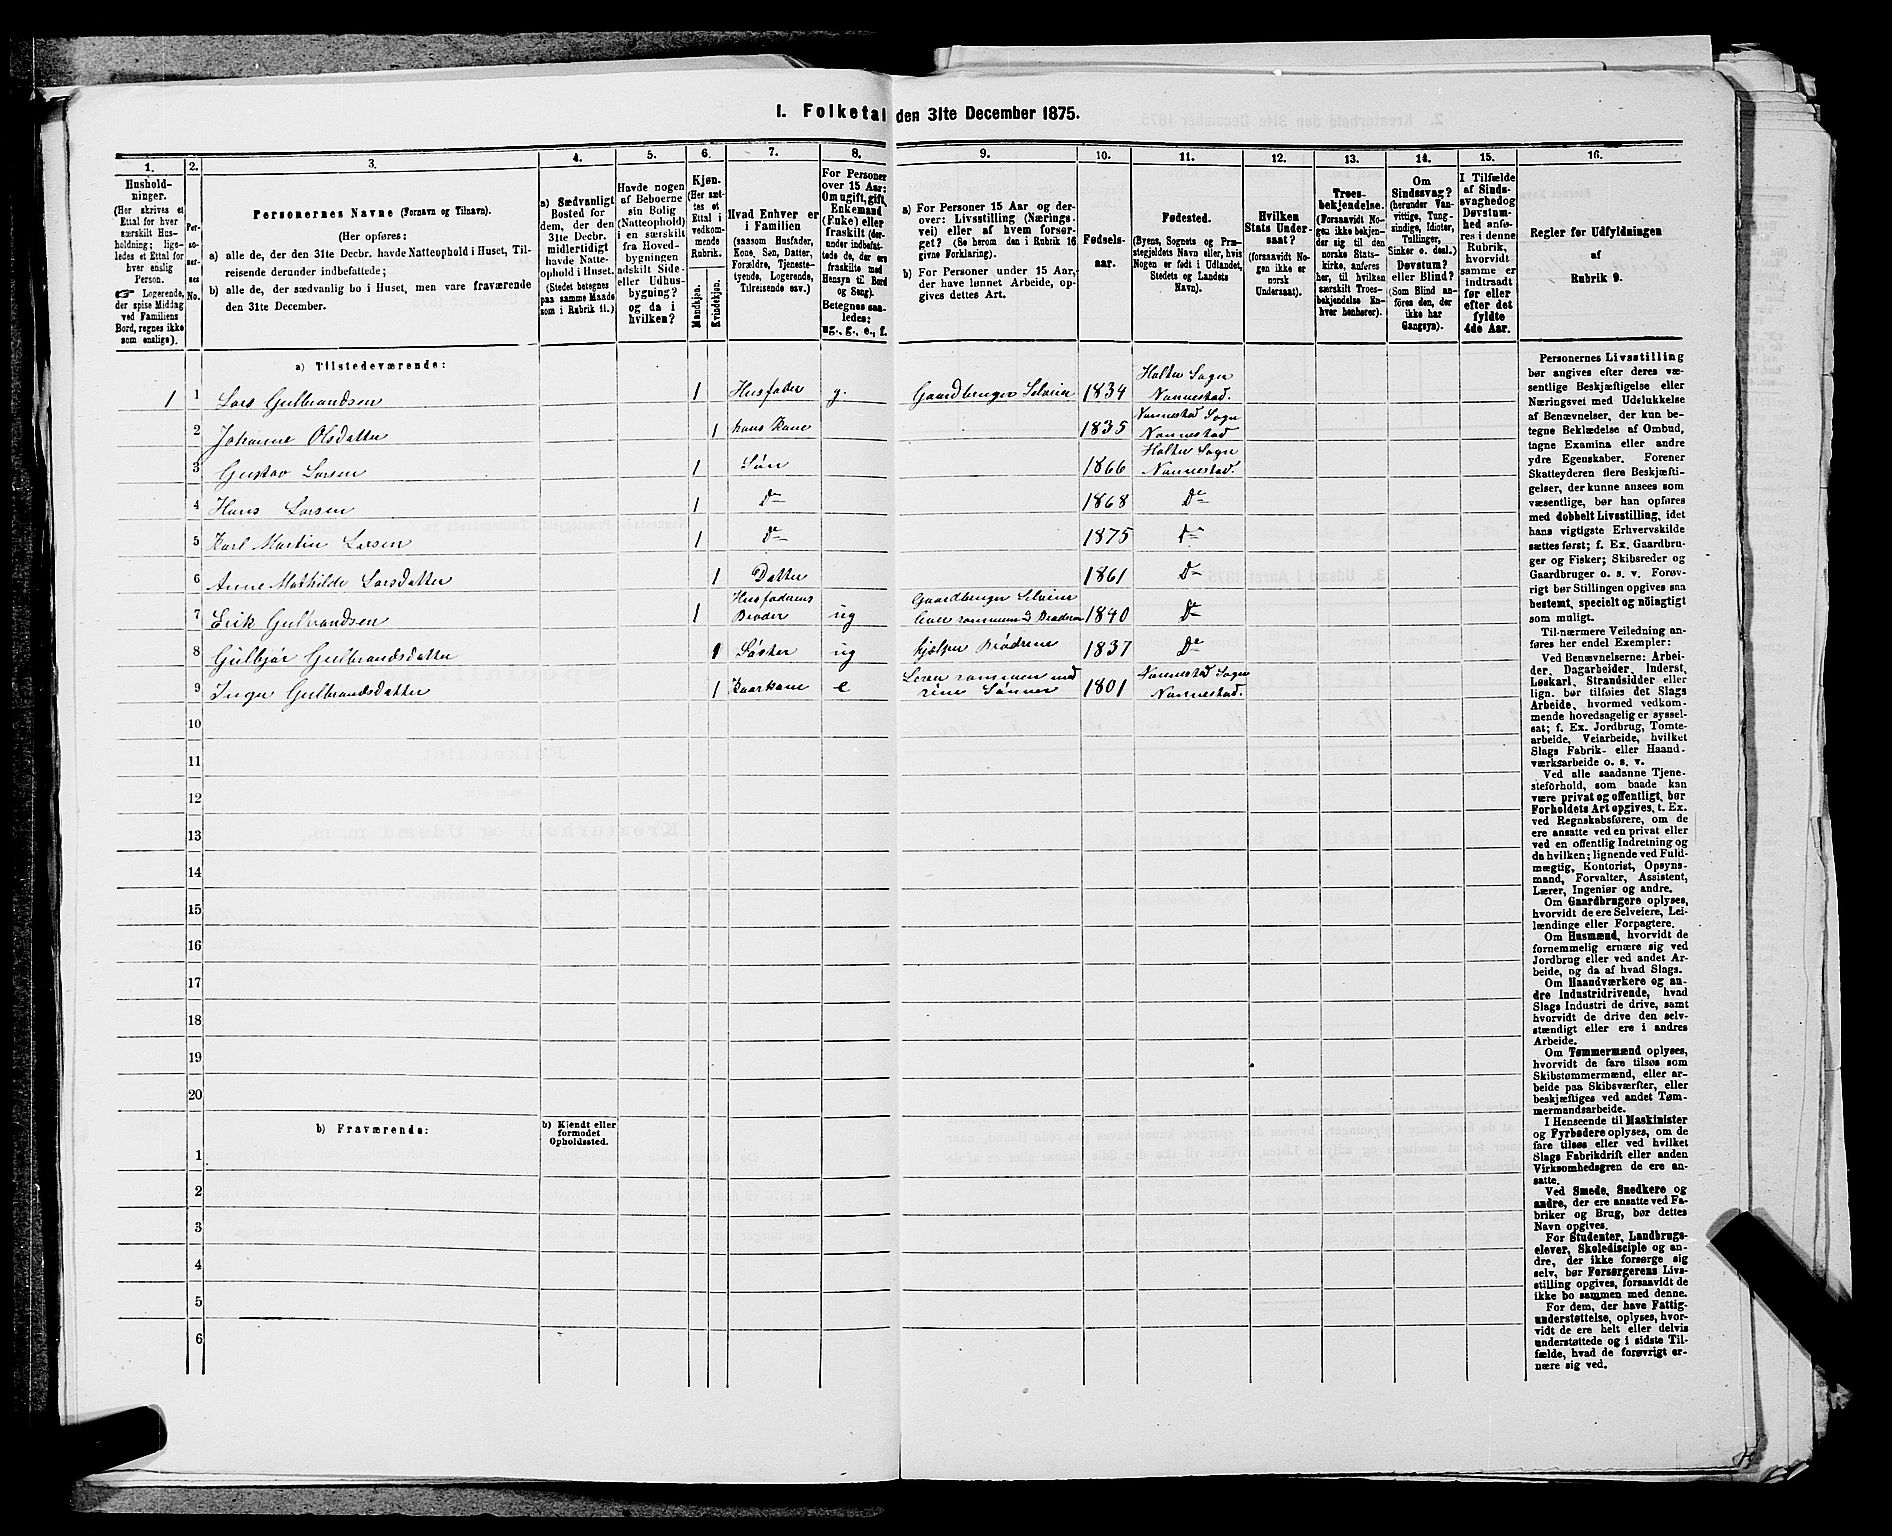 I. Folketal den 31te December 1875.
1.
2.
3.
4.
5.
6.
7.
8.
9.
10.
11.
12.
13.
14.
15.
16.
Hushold-
ninger.
(Her skrives et
Ettal for hver
særskilt Hus-
holdning; lige-
ledes et Ettal for
hver enslig
Person.
☞ Logerende,
der spise Middag
ved Familiens
Bord, regnes ikke
som enslige).
Per-
so-
ner-
nes
No.
Personernes Navne (Fornavn og Tilnavn).
(Her opføres:
a) alle de, der den 31te Decbr. havde Natteophold i Huset, Til-
reisende derunder indbefattede;
b) alle de, der sædvanlig bo i Huset, men vare fraværende
den 31te December.
a) Sædvanligt
Bosted for
dem, der den
31te Decbr.
midlertidigt
havde Natte-
ophold i Huset.
(Stedet betegnes
paa samme Maade
som i Rubrik 11.)
Havde nogen
af Beboerne
sin Bolig
(Natteophold)
i en særskilt
fra Hoved-
bygningen
adskilt Side-
eller Udhus-
bygning?
og da i
hvilken?
Kjøn.
(Her sæt-
tes et
Ettal i
vedkom-
mende
Rubrik.
Mandkjøn.
Kvindekjøn.
Hvad Enhver er
i Familien
(saasom Husfader,
Kone, Søn, Datter,
Forældre, Tjeneste-
tyende, Logerende,
Tilreisende osv.)
For Personer
over 15 Aar:
Om ugift, gift,
Enkemand
(Enke) eller
fraskilt (der-
under indbefat-
tede de, der ere
fraskilte med
Hensyn til Bord
og Seng).
Betegnes saa-
ledes:
ug., g., e., f.
a) For Personer 15 Aar og der-
over: Livsstilling (Nærings-
vei) eller af hvem forsør-
get? (Se herom den i Rubrik 16
givne Forklaring).
b) For Personer under 15 Aar,
der have lønnet Arbeide, op-
gives dettes Art.
Fødsels-
aar.
Fødested.
(Byens, Sognets og Præ-
stegjeldets Navn eller, hvis
Nogen er født i Udlandet,
Stedets og Landets
Navn).
Hvilken
Stats Under-
saat?
(forsaavidt No-
gen ikke er
norsk
Undersaat).
Troes-
bekjendelse.
(Forsaavidt No-
gen ikke bekjen-
der sig til den
norske Stats-
kirke, anføres
her, til hvilken
særskilt Troes-
bekjendelse En-
hver henhører).
Om
Sindssvag?
(herunder Van-
vittige, Tung-
sindige, Idioter,
Tullinger,
Sinker o. desl.)
Døvstum?
eller Blind?
(Som Blind an-
føres den, der
ikke har
Gangsyn).
I Tilfælde
af Sinds-
svaghed og
Døvstum-
hed anfø-
res i denne
Rubrik,
hvorvidt
samme er
indtraadt
før eller
efter det
fyldte
4de Aar.
Regler for Udfyldningen
af
Rubrik 9.
a) Tilstedeværende:
1 1 Lars Gulbrandsen 1 Husfader g. Gaardbruger Selveier 1834 Holter Sogn Nannestad.
2 Johanne Olsdatter 1 hans Kone 1835 Nannestad Sogn Nannestad
3 Gustav Larsen 1 Søn 1866 Holter Sogn Nannestad.
4 Hans Larsen 1 Do 1868 Do
5 Karl Martin Larsen 1 Do 1875 Do
6 Anne Mathilde Larsdatter 1 Datter 1861 Do
7 Erik Gulbrandsen 1 Husfaderens Broder ug Gaardbruger Selveier 1840 Do
8 Gulbjør Gulbrandsdatter 1 Søster ug hjælper Brødrene 1837 De
9 Inger Gulbrandsdatter 1 Kaarkone e Lever sammen med sine Sønner 1801 Nannestad Sogn Nannestad.
10
11
12
13
14
15
16
17
18
19
20
b) Fraværende:
b) Kjendt eller
formodet
Opholdssted.
1
2
3
4
5
6
Personernes Livsstilling
bør angives efter deres væ-
sentlige Beskjæftigelse eller
Næringsvei med Udelukkelse
af Benævnelser, der kun be-
tegne Beklædelse af Ombud,
tagne Examina eller andre
ydre Egenskaber. Forener
Skatteyderen flere Beskjæfti-
gelser, der kunne ansees som
væsentlige, bør han opføres
med dobbelt Livsstilling, idet
hans vigtigste Erhvervskilde
sættes først; f. Ex. Gaardbru-
ger og Fisker; Skibsreder og
Gaardbruger o. s. v. Forøv-
rigt bør Stillingen opgives saa
bestemt, specielt og nøiagtigt
som muligt.
Til nærmere Veiledning an-
føres her endel Exempler:
Ved Benævnelserne: Arbei-
der, Dagarbeider, Inderst,
Løskarl, Strandsidder eller
lign. bør tilføies det Slags
Arbeide, hvormed vedkom-
mende hovedsagelig er syssel-
sat; f. Ex. Jordbrug, Tomte-
arbeide, Veiarbeide, hvilket
Slags Fabrik- eller Haand-
værksarbeide o. s. v.
Ved alle saadanne Tjene-
steforhold, som baade kan
være privat og offentligt, bør
Forholdets Art opgives, t. Ex.
ved Regnskabsførere, om de
ere ansatte ved en privat eller
ved en offentlig Indretning og
da hvilken; lignende ved Fuld-
mægtig, Kontorist, Opsyns-
mand, Forvalter, Assistent,
Lærer, Ingeniør og andre.
Om Gaardbrugere oplyses,
hvorvidt de ere Selveiere, Lei-
lændinge eller Forpagtere.
Om Husmænd, hvorvidt de
fornemmelig ernære sig ved
Jordbrug eller ved andet Ar-
beide, og da af hvad Slags.
Om Haandværkere og an-
dre Industridrivende, hvad
Slags Industri de drive, samt
hvorvidt de drive den selv-
stændigt eller ere i andres
Arbeide.
Om Tømmermænd oplyses,
hvorvidt de fare tilsøs som
Skibstømmermænd, eller ar-
beide paa Skibsværfter, eller
beskjæftiges ved andet Tøm-
mermandsarbeide.
I Henseende til Maskinister
og Fyrbødere oplyses, om de
fare tilsøs eller ved hvilket
Slags Fabrikdrift eller anden
Virksomhedsgren de ere an-
satte.
Ved Smede, Snedkere og
andre, der ere ansatte ved Fa-
briker og Brug, bør dettes
Navn opgives.
For Studenter, Landbrugs-
elever, Skoledisciple og an-
dre, der ikke forsørge sig
selv, bør Forsørgerens Livs-
stilling opgives, forsaavidt de
ikke bo sammen med denne.
For dem, der have Fattig-
understøttelse, oplyses, hvor-
vidt de ere helt eller delvis
understøttede og i sidste Til-
fælde, hvad de forøvrigt er-
nære sig ved.